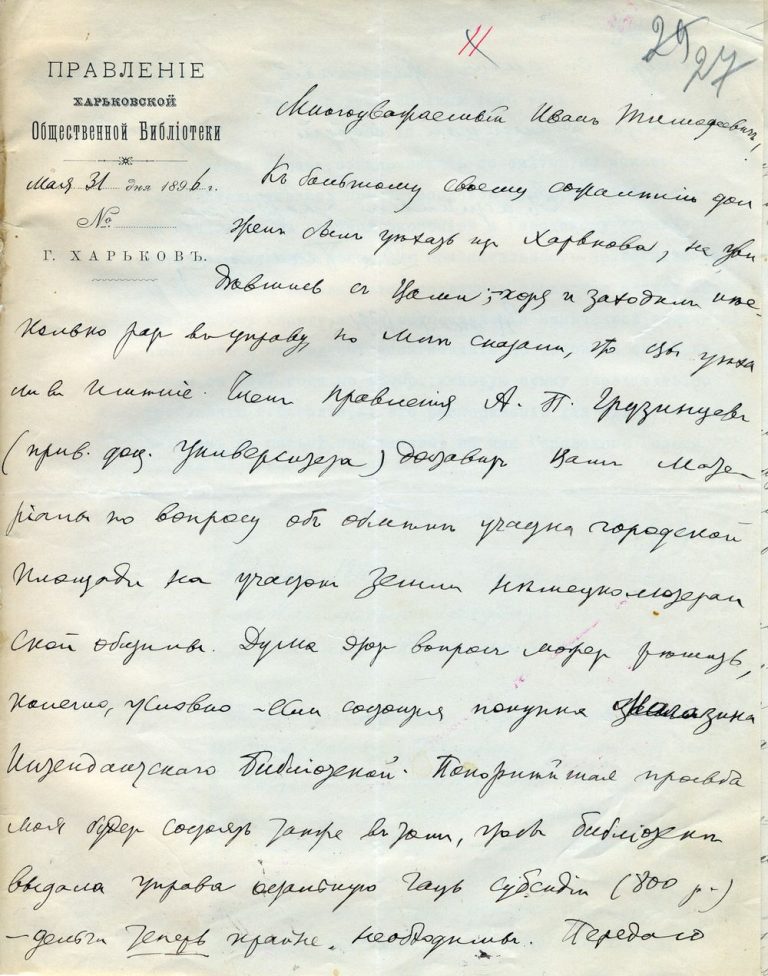 11
25
27
ПРАВЛЕНІЕ
ХАРЬКОВСКОЙ
Общественной Библіотеки
Мая 31 дня 1896 г.
№
Г. ХАРЬКОВЪ.
Многоуважаемый Иванъ Тимофеевичъ!
Къ большому своему сожалѣнію дол
женъ былъ уѣхать изъ Харькова, не уви
дѣвшись съ Вами; хотя и заходилъ нѣс-
колько разъ въ управу, но мнѣ сказали, что Вы уѣха
ли въ имѣніе. Членъ Правленія А. П. Грузинцевъ
(прив. доц. Университета) доставитъ Вамъ мате
ріалы по вопросу объ обмѣнѣ участка городской
площади на участокъ земли нѣмецко-лютеран
ской общины. Дума этотъ вопросъ можетъ рѣшить,
конечно, условно - если состоится покупка магазина
Интендантскаго Библіотекой. Покорнѣйшая просьба
моя будетъ состоять также въ томъ, чтобы библіотекѣ
выдала управа остатную часть субсидіи (800 р.)
- деньги теперь крайне необходимы. Передаю